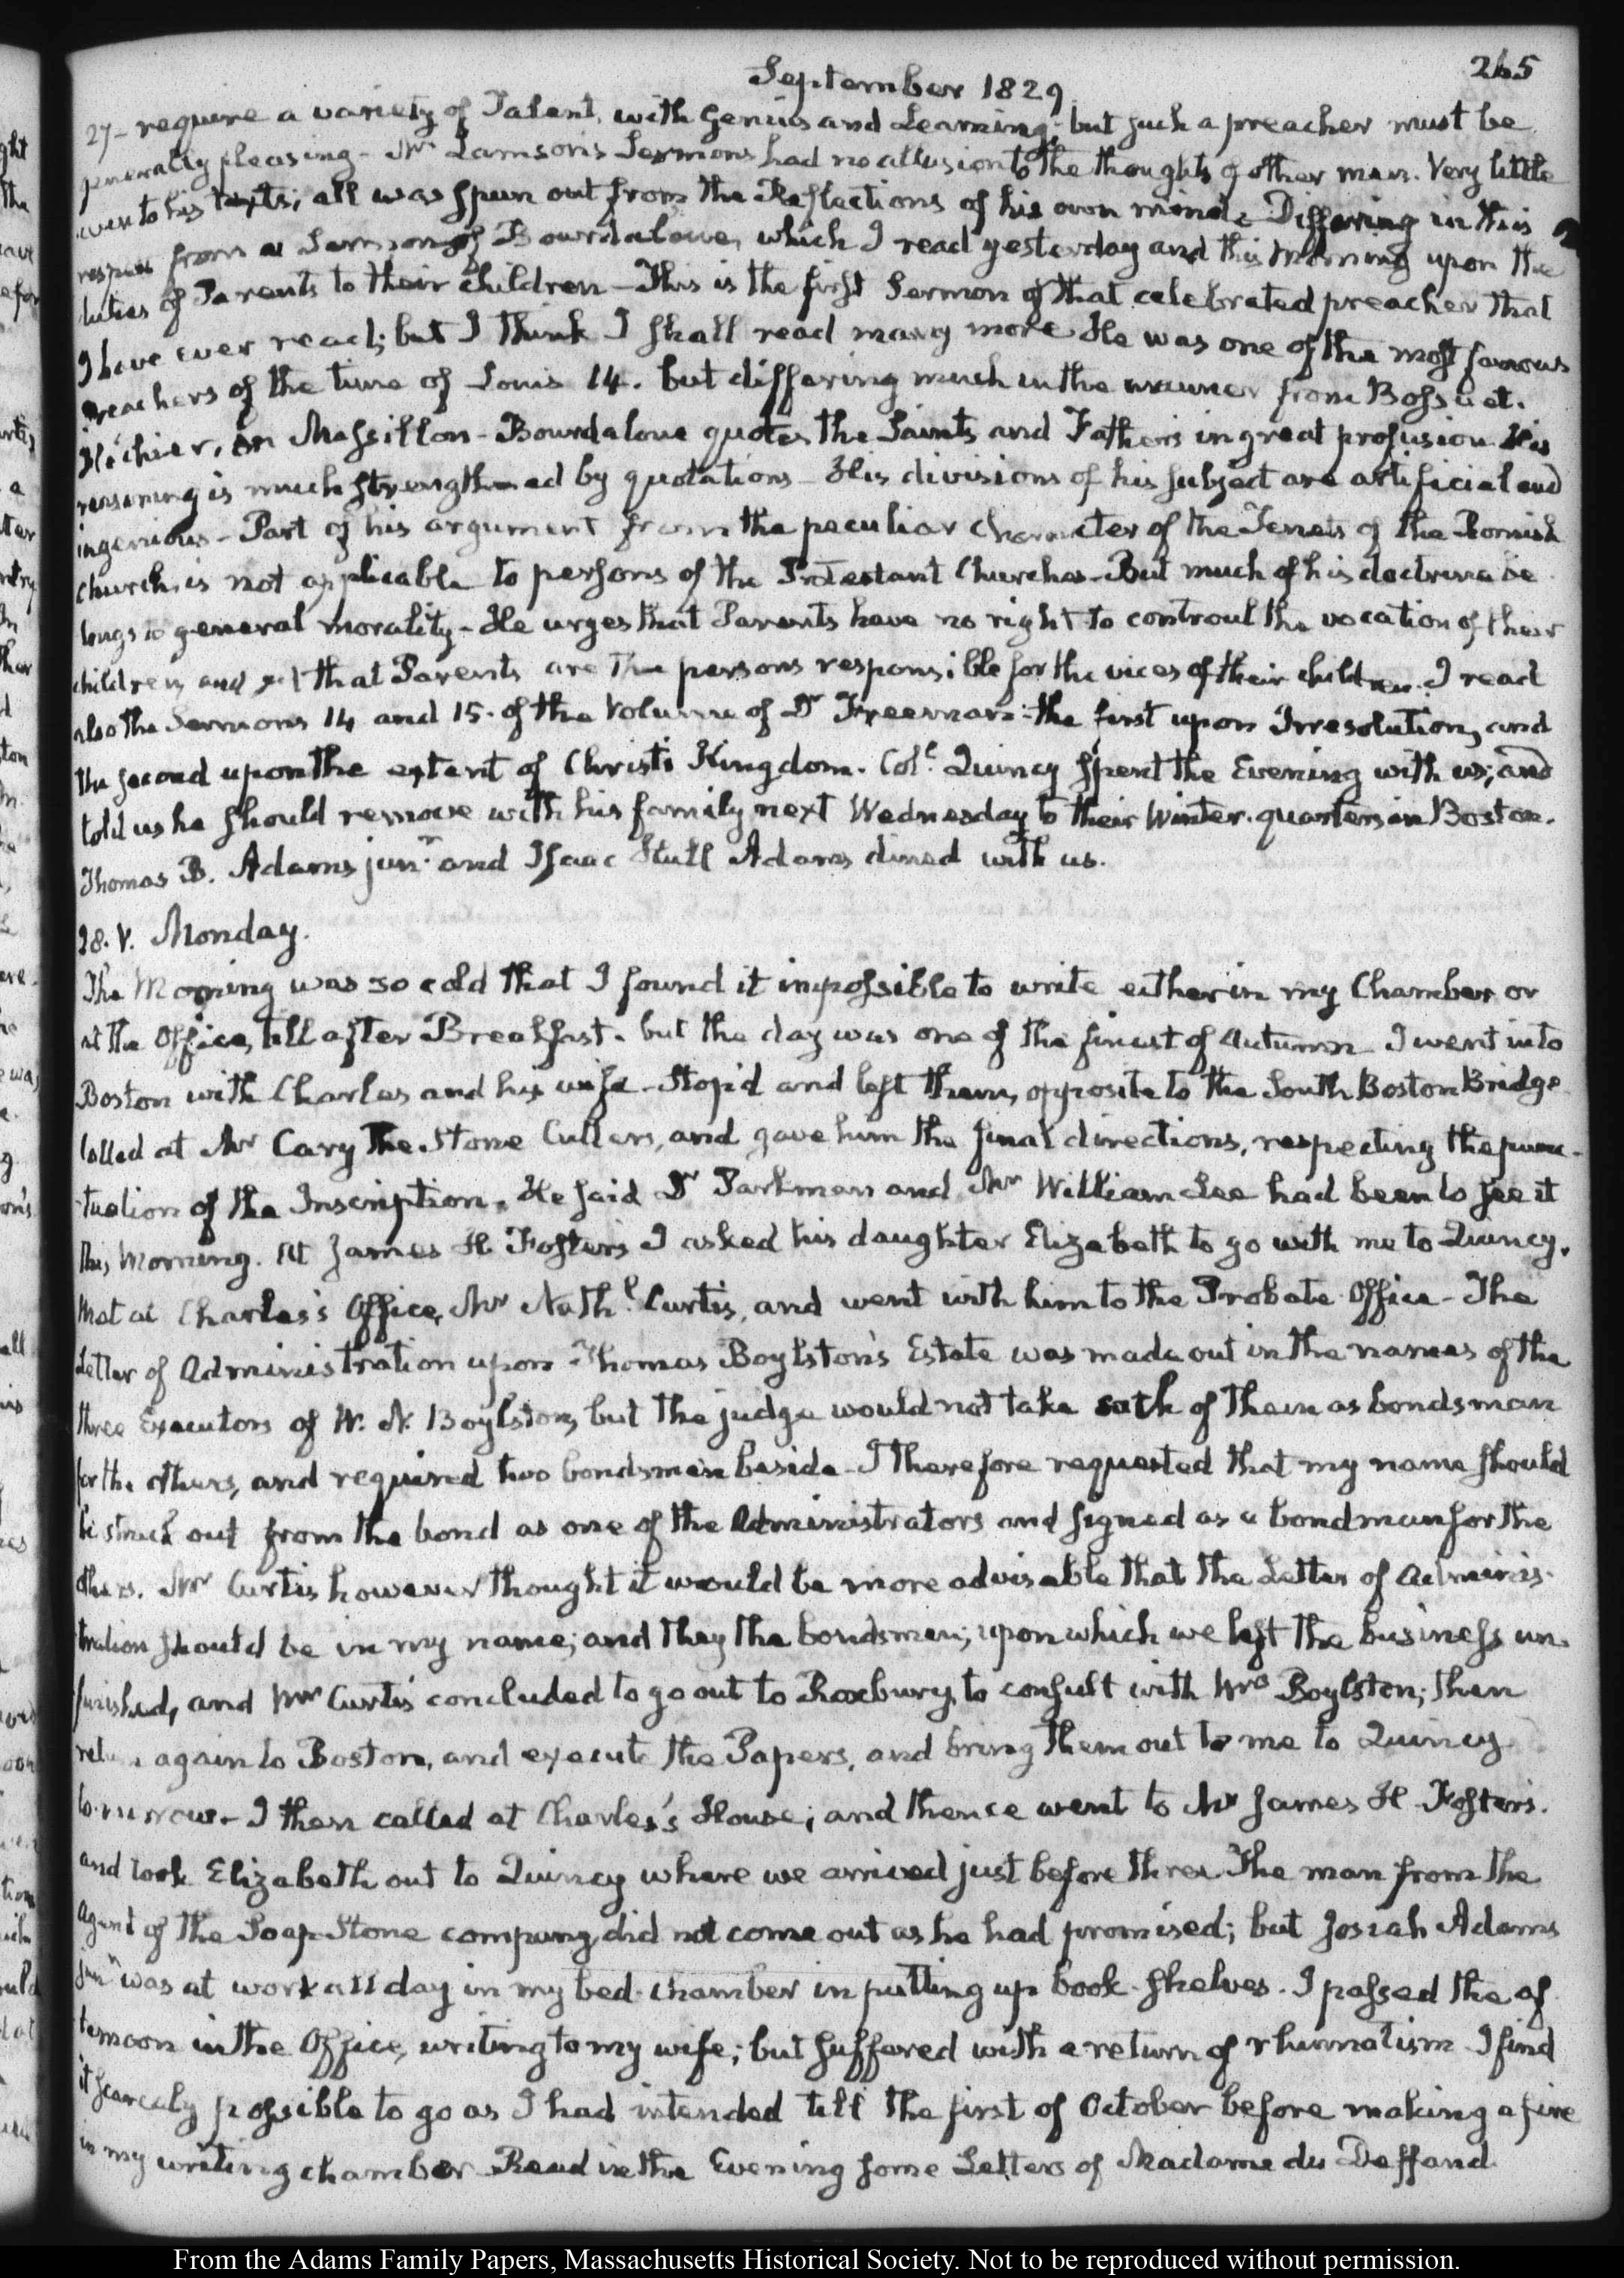 265
September 1829.
27- require a variety of Talent, with Genius and Learning; but such a preacher must be
generally pleasing - Mr Lamson's Sermons had no allusion to the thoughts of other men. Very little
even to his texts; all was spun out from the Reflections of his own mind. Differing in this
respect from a Sermon of Bourdaloue, which I read yesterday and this Morning upon the
duties of Parents to their Children - This is the first Sermon of that celebrated preacher that
I have ever read; but I think I shall read many more. He was one of the most famous
preachers of the time of Louis 14. but differing much in the manner from Bossuet.
Fléchier, or Massillon - Bourdaloue quotes the Saints and Fathers in great profusion. His
reasoning is much strengthened by quotations - His divisions of his subject are artificial and
ingenious - Part of his argument from the peculiar character of the Tenets of the Romish
Church, is not applicable to persons of the Protestant Churches - But much of his doctrine be
longs to general morality - He urges that Parents have no right to controul the vocation of their
children, and yet that Parents are the persons responsible for the vices of their children. I read
also the Sermons 14 and 15. of the Volume of Dr Freeman: the first upon Irresolution, and
the second upon the extent of Christ's Kingdom. Col.l Quincy spent the Evening with us; and
told us he should remove with his family next Wednesday to their Winter quarters in Boston.
Thomas B. Adams junr and Isaac Hull Adams dined with us.
28. V. Monday.
The Morning was so cold that I found it impossible to write either in my Chamber or
at the Office, till after Breakfast. but the day was one of the finest of Autumn I went into
Boston with Charles and his wife - Stop'd and left them, opposite to the South Boston Bridge
Called at Mr Cary the Stone Cutters, and gave him the final directions, respecting the punc-
-tuation of the Inscription. He said Dr Parkman and Mr William Lee had been to see it
this Morning. At James H Foster's I asked his daughter Elizabeth to go with me to Quincy.
Met at Charles's Office, Mr Nathl Curtis, and went with him to the Probate Office - The
Letter of Administration upon Thomas Boylston's Estate was made out in the names of the
three Executors of W. N. Boylston, but the judge would not take each of them as bondsman
for the others, and required two bondsmen beside - I therefore requested that my name should
be struck out from the bond as one of the Administrators and signed as a bondman for the
others. Mr Curtis however thought it would be more advisable that the Letter of Adminis-
tration should be in my name; and they the bondsmen; upon which we left the business un-
finished, and Mr Curtis concluded to go out to Roxbury, to consult with Mrs Boylston; then
return again to Boston, and execute the Papers, and bring them out to me to Quincy
to-morrow. - I then called at Charles's House; and thence went to Mr James H Foster's.
and took Elizabeth out to Quincy where we arrived just before three. The man from the
Agent of the Soap-Stone company, did not come out as he had promised; but Josiah Adams
junr was at work all day in my bed-chamber in putting up book-shelves. I passed the af
ternoon in the Office, writing to my wife; but suffered with a return of rhumatism I find
it scarcely possible to go as I had intended till the first of October before making a fire
in my writing chamber - Read in the Evening some Letters of Madame du Deffand.
From the Adams Family Papers, Massachusetts Historical Society. Not to be reproduced without permission.